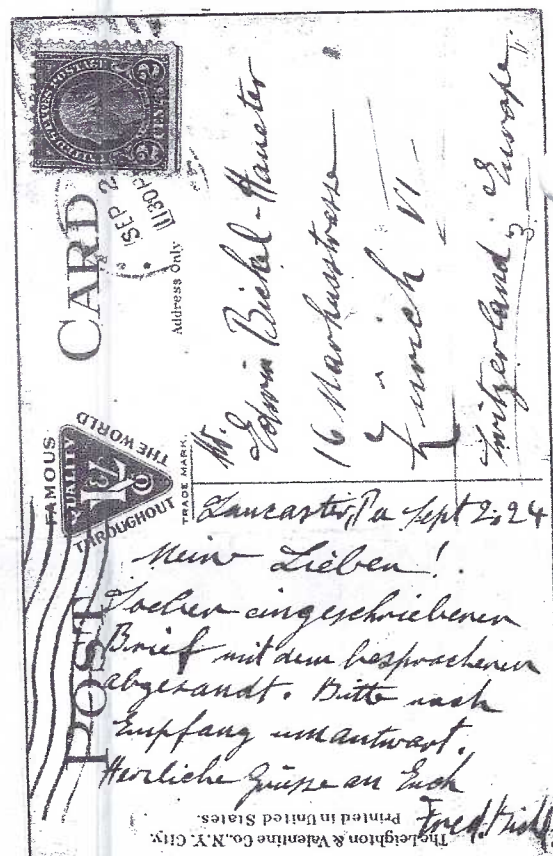 POST CARD
FAMOUS
QUALITY
THROUGHOUT
THE WORLD
TRADE MARK.
UNITED STATES POSTAGE
2 CENTS 2
SEP 2
1130P
Address Only
Mr.
Edwin Bickel-Hauster
16
Zürich VI
Switzerland, Europe.
Lancaster, Pa Sept 2. 24
Meine Lieben!
Soeben eingeschriebenen
Brief mit dem besprochenen
abgesandt. Bitte nach
Empfang um antwort.
Herzliche Grüsse an Euch
Fred.
The Leighton & Valentine Co., N.Y. City.
Printed in United States.